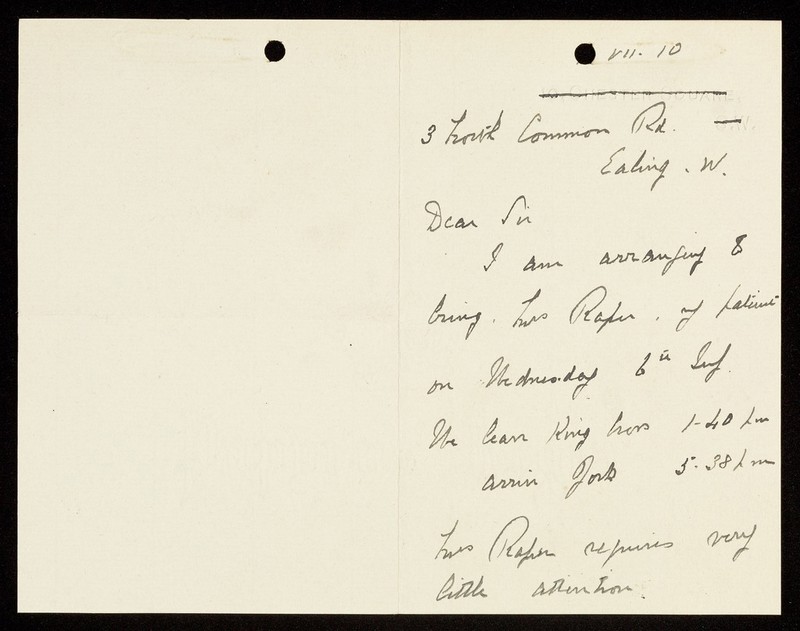 VII. 10
3 North Common Rd.
Ealing. W.
Dear Sir
I am arranging to
bring. Mrs Raper. my patient
on Wednesday 6th
We leave King Cross 1-40 pm
arrive York 5-38 pm
Mrs Raper requires very
little attention.